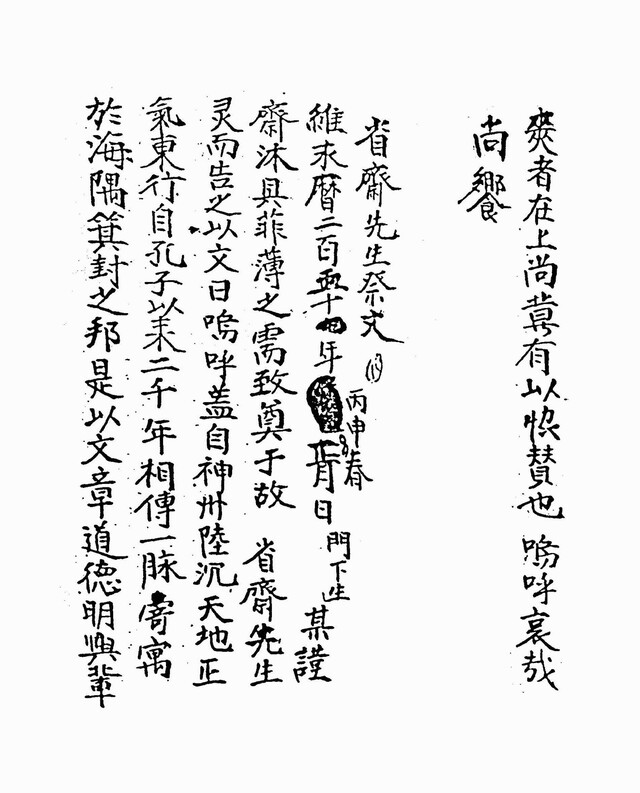 爽者在上尚冀有以悢賛也 嗚呼哀哉
尚饗
省齋先生祭文
維永曆二百五十四年
丙申春
正月日 門下生 某謹
齋沐具菲薄之需致奠于故 省齋先生
灵而告之以文曰嗚呼盖自神州陸沉天地正
氣東行自孔子以来二千年相傳一脉寄寓
於海隅箕封之邦是以文章道德明興輩